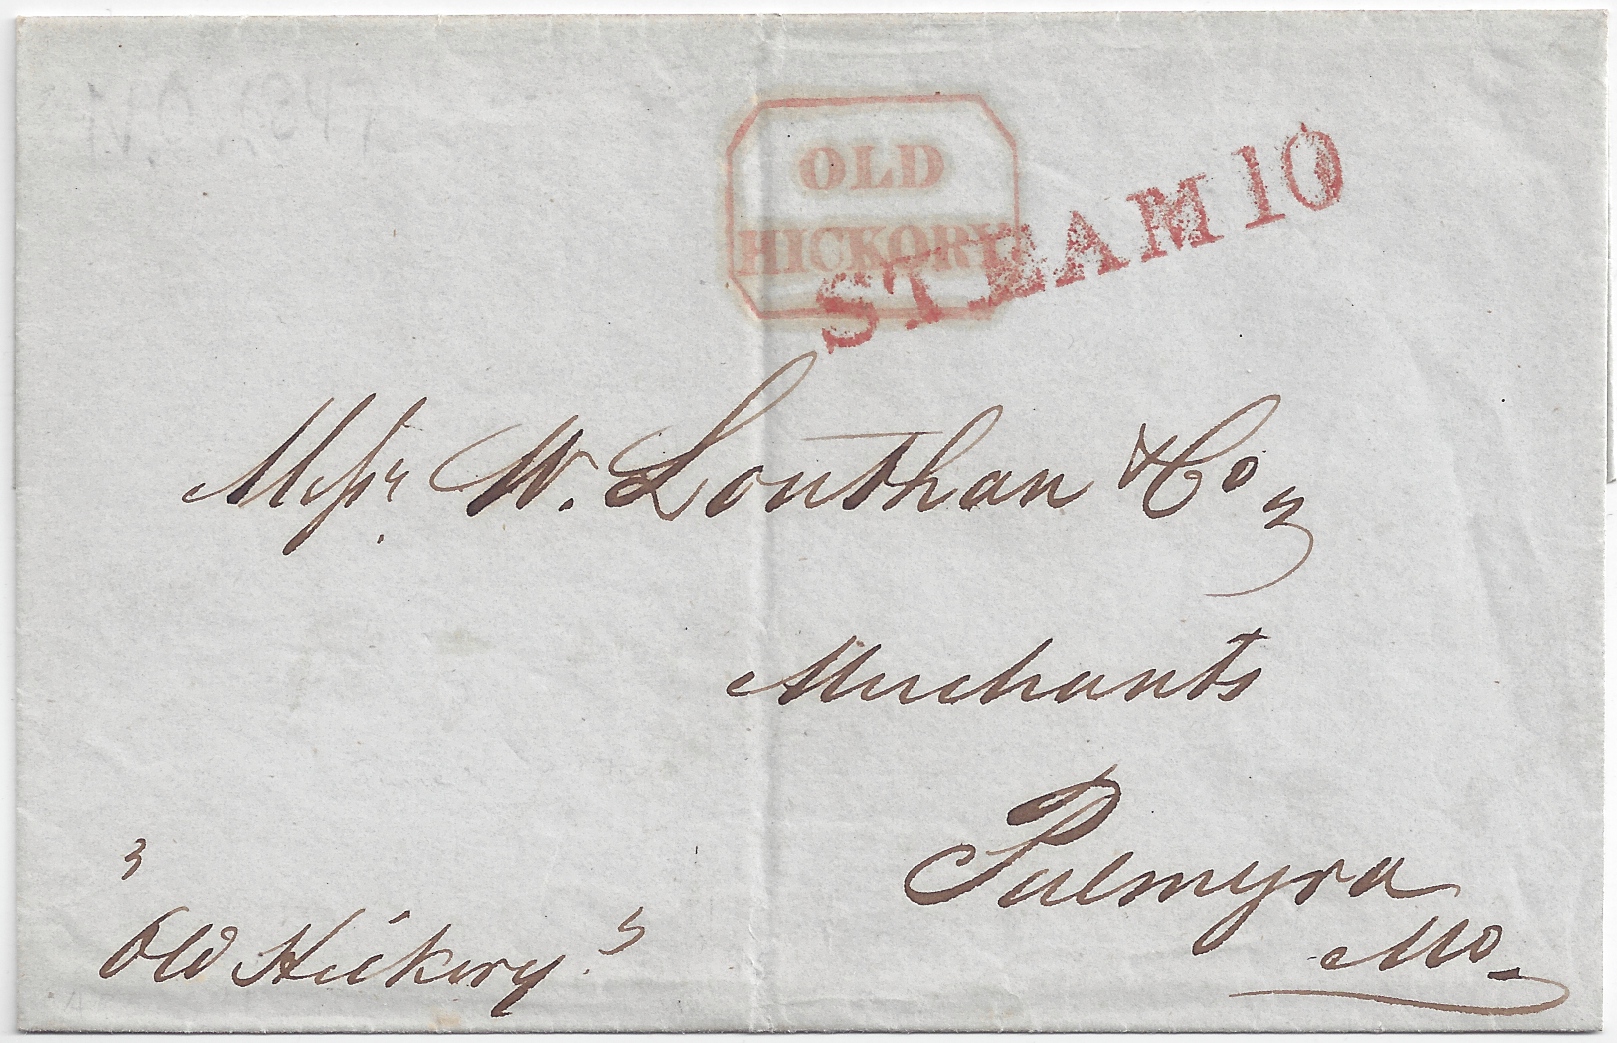 OLD
HICKORY
STEAM 10
Messrs W. Louthan & Co,
Merchants
Palmyra
Mo.
"Old Hickory."